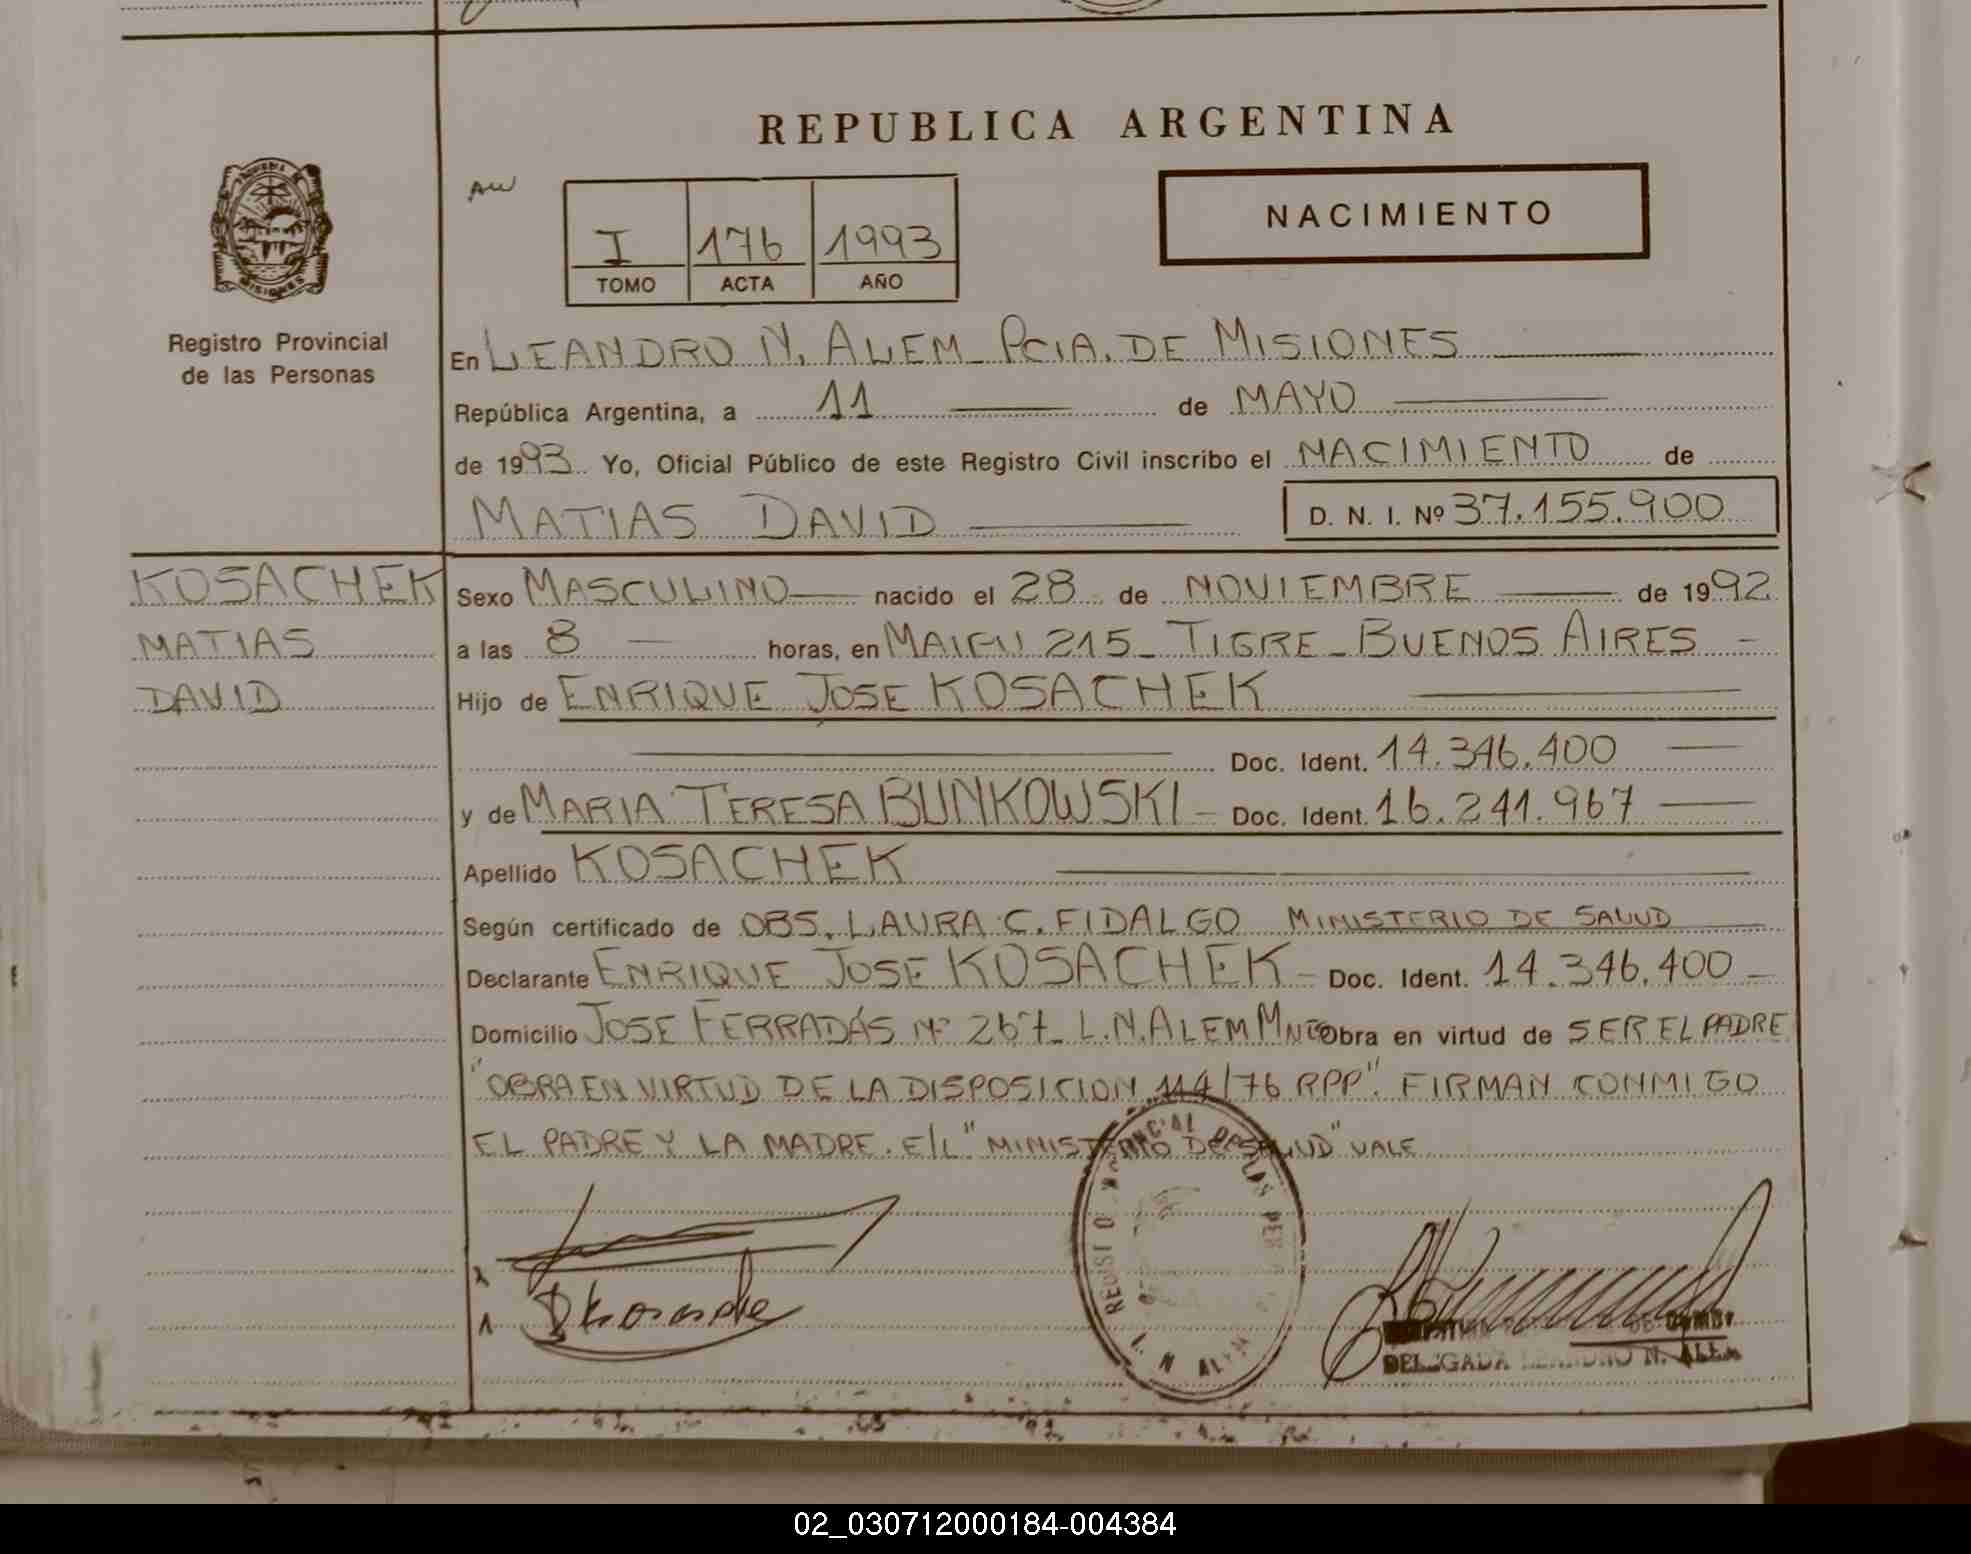 REPUBLICA ARGENTINA
NACIMIENTO
AW
I 176 1993
TOMO ACTA AÑO
MISIONES
Registro Provincial
de las Personas
En LEANDRO N. ALEM PCIA. DE MISIONES
República Argentina, a 11 de MAYO
de 1993 Yo, Oficial Público de este Registro Civil inscribo el NACIMIENTO de
MATIAS DAVID D. N. I. Nº 37.155.900
KOSACHEK
MATIAS
DAVID
Sexo MASCULINO nacido el 28 de NOVIEMBRE de 1992
a las 8 horas, en MAIPU 215 - TIGRE - BUENOS AIRES -
Hijo de ENRIQUE JOSE KOSACHEK
Doc. Ident. 14.346.400
y de MARIA TERESA BUNKOWSKI - Doc. Ident. 16.241.967
Apellido KOSACHEK
Según certificado de OBS. LAURA C. FIDALGO MINISTERIO DE SALUD
Declarante ENRIQUE JOSE KOSACHEK - Doc. Ident. 14.346.400
Domicilio JOSE FERRADÁS Nº 267 - L.N.ALEM MNES Obra en virtud de SER EL PADRE
"OBRA EN VIRTUD DE LA DISPOSICION 114/76 RPP". FIRMAN CONMIGO
EL PADRE Y LA MADRE. E/L "MINISTERIO DE SALUD" VALE
2
1
L. N. ALEM
DELEGADA LEANDRO N. ALEM
02_030712000184-004384